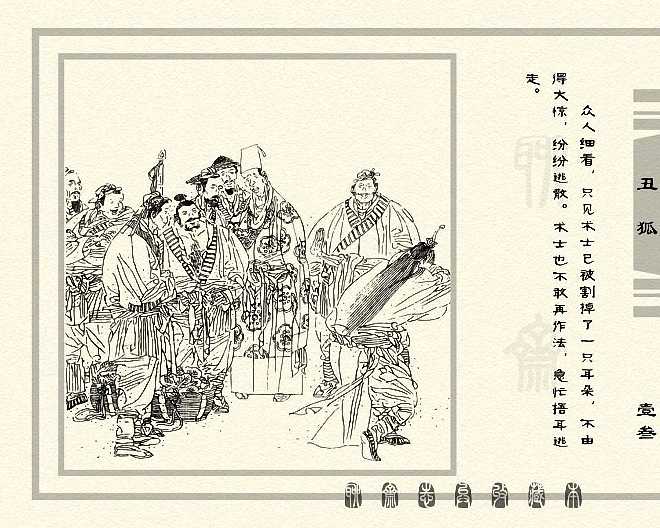 众人细看，只见术士已被割掉了一只耳朵，不由
得大惊，纷纷逃散。术士也不敢再作法，急忙捂耳逃
走。
丑狐
壹叁
聊斋志异收藏本